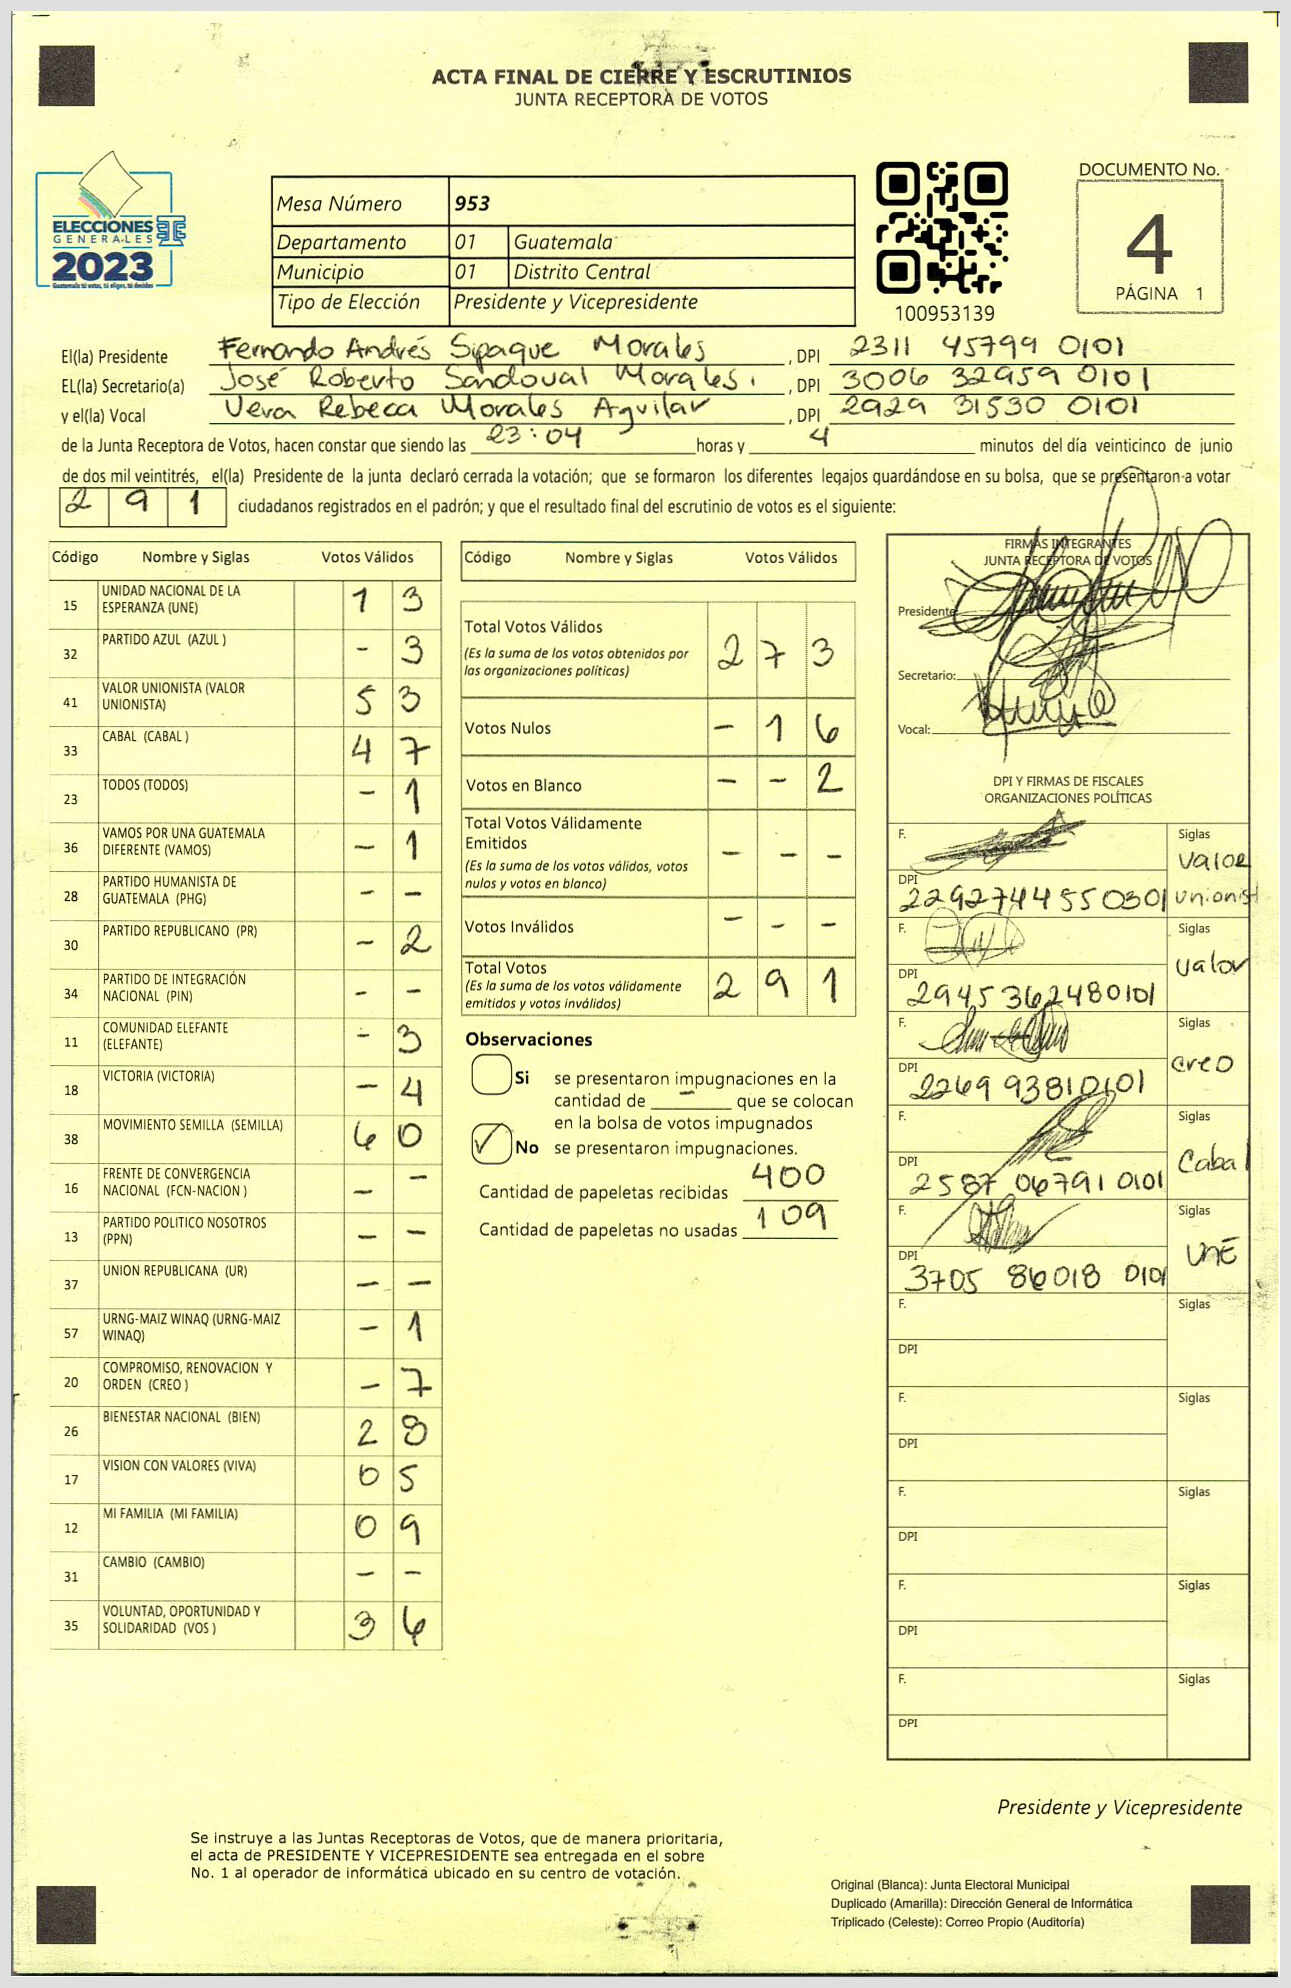 ACTA FINAL DE CIERRE Y ESCRUTINIOS
JUNTA RECEPTORA DE VOTOS
ELECCIONES
GENERALES
2023
Guatemala tú votas, tú eliges, tú decides
Mesa Número 953
Departamento 01 Guatemala
Municipio 01 Distrito Central
Tipo de Elección Presidente y Vicepresidente
100953139
DOCUMENTO No.
4
PÁGINA 1
El(la) Presidente Fernando Andrés Sipaque Morales, DPI 2311 45799 0101
EL(la) Secretario(a) José Roberto Sandoval Morales, DPI 3006 32959 0101
y el(la) Vocal Vera Rebeca Morales Aguilar, DPI 2929 31530 0101
de la Junta Receptora de Votos, hacen constar que siendo las 23:04 horas y 4 minutos del día veinticinco de junio
de dos mil veintitrés, el(la) Presidente de la junta declaró cerrada la votación; que se formaron los diferentes legajos guardándose en su bolsa, que se presentaron a votar
2 9 1 ciudadanos registrados en el padrón; y que el resultado final del escrutinio de votos es el siguiente:
Código Nombre y Siglas Votos Válidos
15 UNIDAD NACIONAL DE LA ESPERANZA (UNE) 1 3
32 PARTIDO AZUL (AZUL ) - 3
41 VALOR UNIONISTA (VALOR UNIONISTA) 5 3
33 CABAL (CABAL ) 4 7
23 TODOS (TODOS) - 1
36 VAMOS POR UNA GUATEMALA DIFERENTE (VAMOS) - 1
28 PARTIDO HUMANISTA DE GUATEMALA (PHG) - -
30 PARTIDO REPUBLICANO (PR) - 2
34 PARTIDO DE INTEGRACIÓN NACIONAL (PIN) - -
11 COMUNIDAD ELEFANTE (ELEFANTE) - 3
18 VICTORIA (VICTORIA) - 4
38 MOVIMIENTO SEMILLA (SEMILLA) 6 0
16 FRENTE DE CONVERGENCIA NACIONAL (FCN-NACION ) - -
13 PARTIDO POLITICO NOSOTROS (PPN) - -
37 UNION REPUBLICANA (UR) - -
57 URNG-MAIZ WINAQ (URNG-MAIZ WINAQ) - 1
20 COMPROMISO, RENOVACION Y ORDEN (CREO ) - 7
26 BIENESTAR NACIONAL (BIEN) 2 8
17 VISION CON VALORES (VIVA) 0 5
12 MI FAMILIA (MI FAMILIA) 0 9
31 CAMBIO (CAMBIO) - -
35 VOLUNTAD, OPORTUNIDAD Y SOLIDARIDAD (VOS ) 3 6
Código Nombre y Siglas Votos Válidos
Total Votos Válidos 2 7 3
(Es la suma de los votos obtenidos por
las organizaciones políticas)
Votos Nulos - 1 6
Votos en Blanco - - 2
Total Votos Válidamente
Emitidos - - -
(Es la suma de los votos válidos, votos
nulos y votos en blanco)
Votos Inválidos - - -
Total Votos 2 9 1
(Es la suma de los votos válidamente
emitidos y votos inválidos)
Observaciones
Si se presentaron impugnaciones en la
cantidad de - que se colocan
en la bolsa de votos impugnados
✓ No se presentaron impugnaciones.
Cantidad de papeletas recibidas 400
Cantidad de papeletas no usadas 109
FIRMAS INTEGRANTES
JUNTA RECEPTORA DE VOTOS
Presidente:
Secretario:
Vocal:
DPI Y FIRMAS DE FISCALES
ORGANIZACIONES POLÍTICAS
F. Siglas
Valor
DPI 2292744550301 Unionist
F. Siglas
Valor
DPI 2945362480101
F. Siglas
creo
DPI 2269 93810101
F. Siglas
Cabal
DPI 2587 06791 0101
F. Siglas
UNE
DPI 3705 86018 0101
F. Siglas
DPI
F. Siglas
DPI
F. Siglas
DPI
F. Siglas
DPI
F. Siglas
DPI
Presidente y Vicepresidente
Se instruye a las Juntas Receptoras de Votos, que de manera prioritaria,
el acta de PRESIDENTE Y VICEPRESIDENTE sea entregada en el sobre
No. 1 al operador de informática ubicado en su centro de votación.
Original (Blanca): Junta Electoral Municipal
Duplicado (Amarilla): Dirección General de Informática
Triplicado (Celeste): Correo Propio (Auditoría)